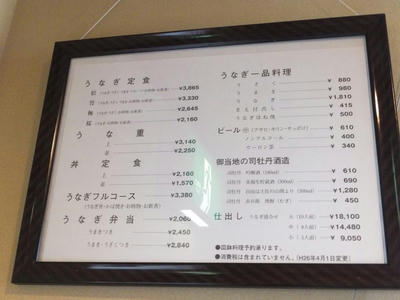 うなぎ定食
松 ¥3,865
竹 ¥3,330
梅 ¥2,645
桜 ¥2,160
うな重
上 ¥3,140
並 ¥2,250
丼定食
上 ¥2,160
並 ¥1,570
うなぎフルコース ¥3,380
うなぎ弁当 ¥2,060
うまきつき ¥2,450
うまき・うざくつき ¥2,840
うなぎ一品料理
うざく ¥ 880
うまき ¥ 980
うなぎ ¥1,810
きも付だし ¥ 415
うなぎほね便 ¥ 500
ビール ㊥ (アサヒ・キリン・サッポロ) ¥ 610
ノンアルコール ¥ 400
ウーロン茶 ¥ 340
御当地の司牡丹酒造
司牡丹 ¥ 610
司牡丹 ¥ 690
司牡丹 ¥1,280
司牡丹 ¥ 450
仕出し うなぎ盛合せ 大 ¥18,100
中 ¥14,480
小 ¥ 9,050
●皿鉢料理予約承ります。
●消費税は含まれていません。(H26年4月1日変更)